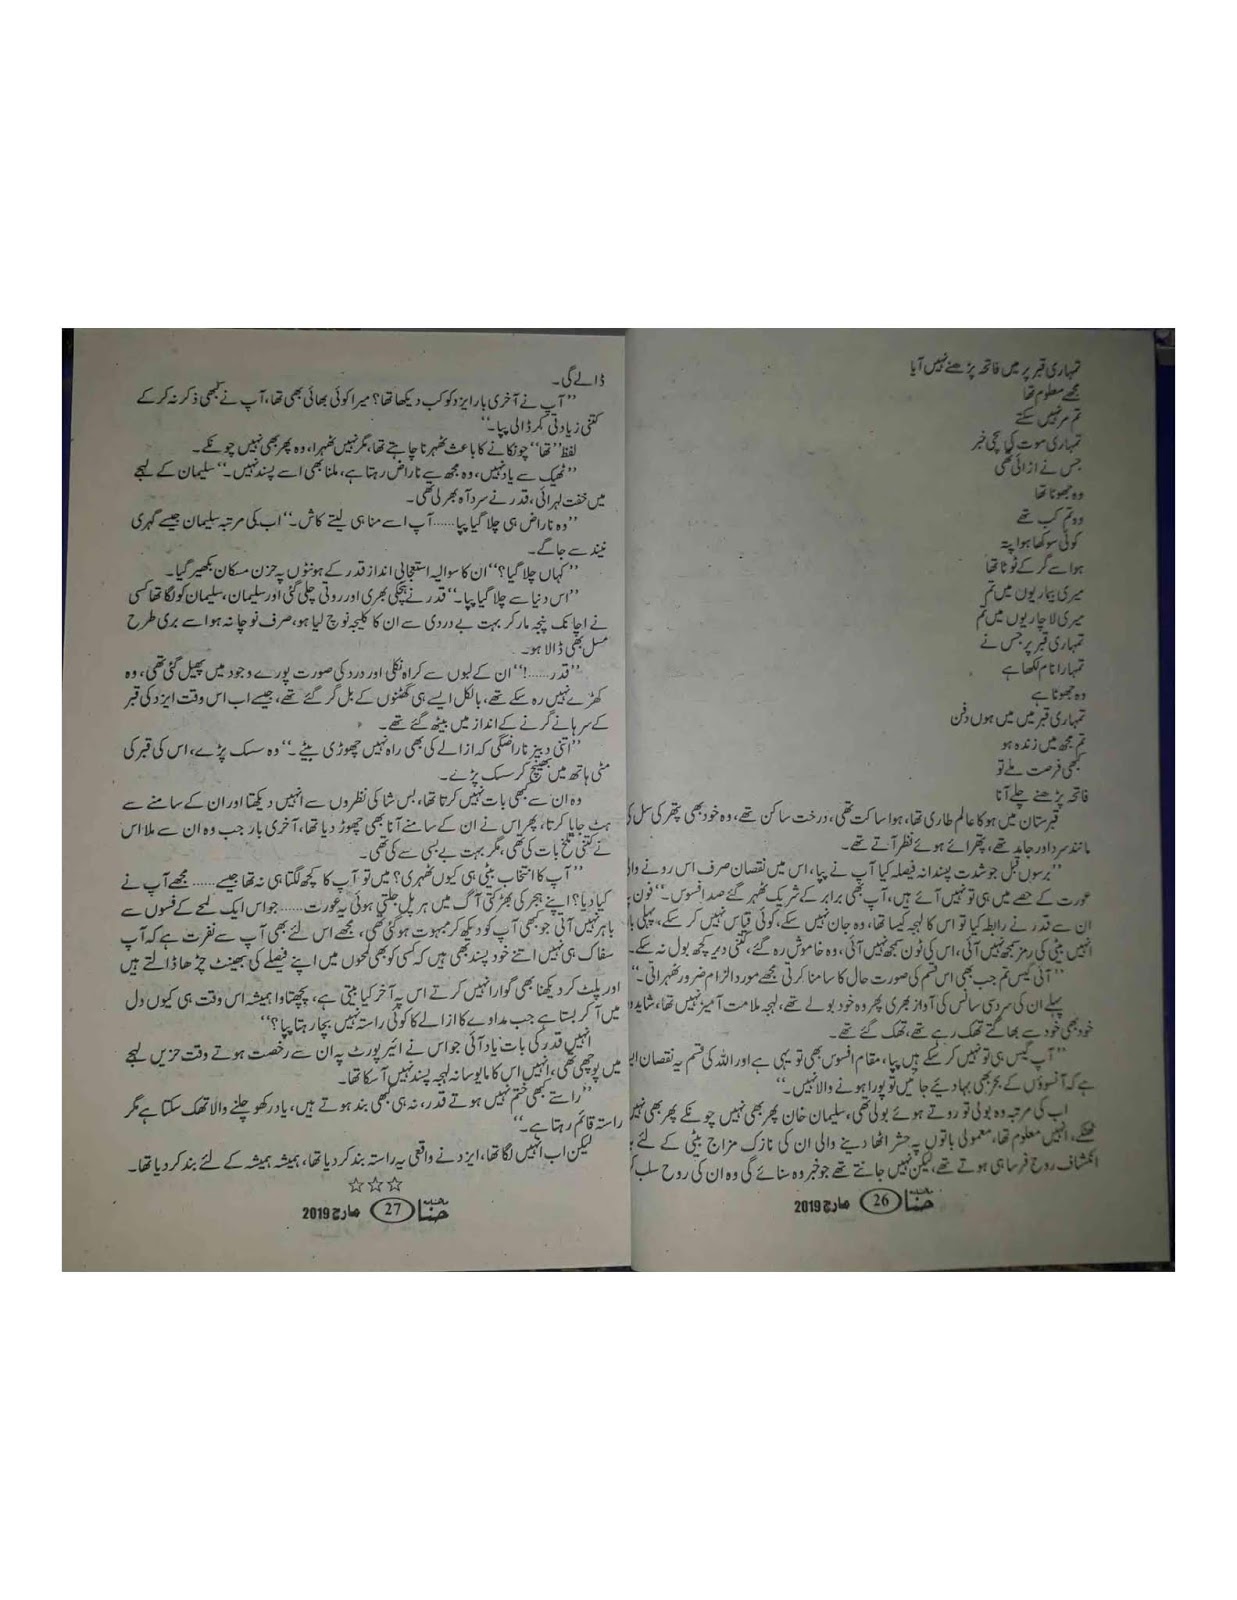 تمہاری قبر پر میں فاتحہ پڑھنے نہیں آیا
مجھے معلوم تھا
تم مر نہیں سکتے
تمہاری موت کی سچی خبر
جس نے اڑائی تھی
وہ جھوٹا تھا
وہ تم کب تھے
کوئی سوکھا ہوا پتہ
ہوا سے گر کے ٹوٹا تھا
میری بیماریوں میں تم
میری لاچاریوں میں تم
تمہاری قبر پر جس نے
تمہارا نام لکھا ہے
وہ جھوٹا ہے
تمہاری قبر میں میں ہوں دفن
تم مجھ میں زندہ ہو
کبھی فرصت ملے تو
فاتحہ پڑھنے چلے آنا
قبرستان میں ہو کا عالم طاری تھا، ہوا ساکت تھی، درخت ساکن تھے، وہ خود بھی پتھر کی سل کی
مانند سرد اور جامد تھے، پتھرائے ہوئے نظر آتے تھے۔
’’برسوں قبل جو شدت پسندانہ فیصلہ کیا آپ نے پپا، اس میں نقصان صرف اس رونے والی
عورت کے حصے میں ہی تو نہیں آئے ہیں، آپ بھی برابر کے شریک ٹھہر گئے صد افسوس۔‘‘ فون پہ
ان سے قدر نے رابطہ کیا تو اس کا لہجہ کیسا تھا، وہ جان نہیں سکے، کوئی قیاس نہیں کر سکے، پہلی بار
انہیں بیٹی کی رمز سمجھ نہیں آئی، اس کی ٹون سمجھ نہیں آئی، وہ خاموش رہ گئے، کتنی دیر کچھ بول نہ سکے۔
’’آئی گیس تم جب بھی اس قسم کی صورت حال کا سامنا کرتی مجھے مورد الزام ضرور ٹھہراتی۔‘‘
پہلے ان کی سرد سی سانس کی آواز بھری پھر وہ خود بولے تھے، لہجہ ملامت آمیز نہیں تھا، شاید وہ
خود بھی خود سے بھاگتے تھک رہے تھے، تھک گئے تھے۔
’’آپ گیس ہی تو نہیں کر سکے ہیں پپا، مقام افسوس بھی تو یہی ہے اور اللہ کی قسم یہ نقصان ایسا
ہے کہ آنسوؤں کے بحر بھی بہا دیئے جائیں تو پورا ہونے والا نہیں۔‘‘
اب کی مرتبہ وہ بولی تو روتے ہوئے بولی تھی، سلیمان خان پھر بھی نہیں چونکے پھر بھی نہیں
ٹھٹکے، انہیں معلوم تھا، معمولی باتوں پہ حشر اٹھا دینے والی ان کی نازک مزاج بیٹی کے لئے ہر
انکشاف روح فرسا ہی ہوتے تھے، لیکن نہیں جانتے تھے جو خبر وہ سنائے گی وہ ان کی روح سلب کر
حنا 26 مارچ 2019
ڈالے گی۔
’’آپ نے آخری بار ایزد کو کب دیکھا تھا؟ میرا کوئی بھائی بھی تھا، آپ نے کبھی ذکر نہ کر کے
کتنی زیادتی کر ڈالی پپا۔‘‘
لفظ ’’تھا‘‘ چونکانے کا باعث ٹھہرنا چاہتے تھا، مگر نہیں ٹھہرا، وہ پھر بھی نہیں چونکے۔
’’ٹھیک سے یاد نہیں، وہ مجھ سے ناراض رہتا ہے، ملنا بھی اسے پسند نہیں۔‘‘ سلیمان کے لہجے
میں خفت لہرائی، قدر نے سرد آہ بھر لی تھی۔
’’وہ ناراض ہی چلا گیا پپا...... آپ اسے منا ہی لیتے کاش۔‘‘ اب کی مرتبہ سلیمان جیسے گہری
نیند سے جاگے۔
’’کہاں چلا گیا؟‘‘ ان کا سوالیہ استعجابی انداز قدر کے ہونٹوں پہ حزن مسکان بکھیر گیا۔
’’اس دنیا سے چلا گیا پپا۔‘‘ قدر نے ہچکی بھری اور روتی چلی گئی اور سلیمان، سلیمان کو لگا تھا کسی
نے اچانک پنجہ مار کر بہت بے دردی سے ان کا کلیجہ نوچ لیا ہو، صرف نوچا نہ ہو اسے بری طرح
مسل بھی ڈالا ہو۔
’’قدر......!‘‘ ان کے لبوں سے کراہ نکلی اور درد کی صورت پورے وجود میں پھیل گئی تھی، وہ
کھڑے نہیں رہ سکے تھے، بالکل ایسے ہی گھٹنوں کے بل گر گئے تھے، جیسے اب اس وقت ایزد کی قبر
کے سرہانے گرنے کے انداز میں بیٹھ گئے تھے۔
’’اتنی دبیز ناراضگی کہ ازالے کی بھی راہ نہیں چھوڑی بیٹے۔‘‘ وہ سسک پڑے، اس کی قبر کی
مٹی ہاتھ میں بھینچ کر سسک پڑے۔
وہ ان سے کبھی بات نہیں کرتا تھا، بس شاکی نظروں سے انہیں دیکھتا اور ان کے سامنے سے
ہٹ جایا کرتا، پھر اس نے ان کے سامنے آنا بھی چھوڑ دیا تھا، آخری بار جب وہ ان سے ملا اس
نے کتنی تلخ بات کی تھی، مگر بہت بے بسی سے کی تھی۔
’’آپ کا انتخاب بیٹی ہی کیوں ٹھہری؟ میں تو آپ کا کچھ لگتا ہی نہ تھا جیسے...... مجھے آپ نے
کیا دیا؟ اپنے ہجر کی بھڑکتی آگ میں ہر پل جلتی ہوئی یہ عورت...... جو اس ایک لمحے کے فسوں سے
باہر نہیں آئی جو کبھی آپ کو دیکھ کر مبہوت ہو گئی تھی، مجھے اس لئے بھی آپ سے نفرت ہے کہ آپ
سفاک ہی نہیں اتنے خود پسند بھی ہیں کہ کسی کو بھی لمحوں میں اپنے فیصلے کی بھینٹ چڑھا ڈالتے ہیں
اور پلٹ کر دیکھنا بھی گوارا نہیں کرتے اس پہ آخر کیا بیتی ہے، پچھتاوا ہمیشہ اس وقت ہی کیوں دل
میں آ کر بستا ہے جب مداوے کا ازالے کا کوئی راستہ نہیں بچا رہتا پپا؟‘‘
انہیں قدر کی بات یاد آئی جو اس نے ائیر پورٹ پہ ان سے رخصت ہوتے وقت حزیں لہجے
میں پوچھی تھی، انہیں اس کا مایوسانہ لہجہ پسند نہیں آ سکا تھا۔
’’راستے کبھی ختم نہیں ہوتے قدر، نہ ہی کبھی بند ہوتے ہیں، یاد رکھو چلنے والا تھک سکتا ہے مگر
راستہ قائم رہتا ہے۔‘‘
لیکن اب انہیں لگا تھا، ایزد نے واقعی یہ راستہ بند کر دیا تھا، ہمیشہ ہمیشہ کے لئے بند کر دیا تھا۔
☆☆☆
حنا 27 مارچ 2019